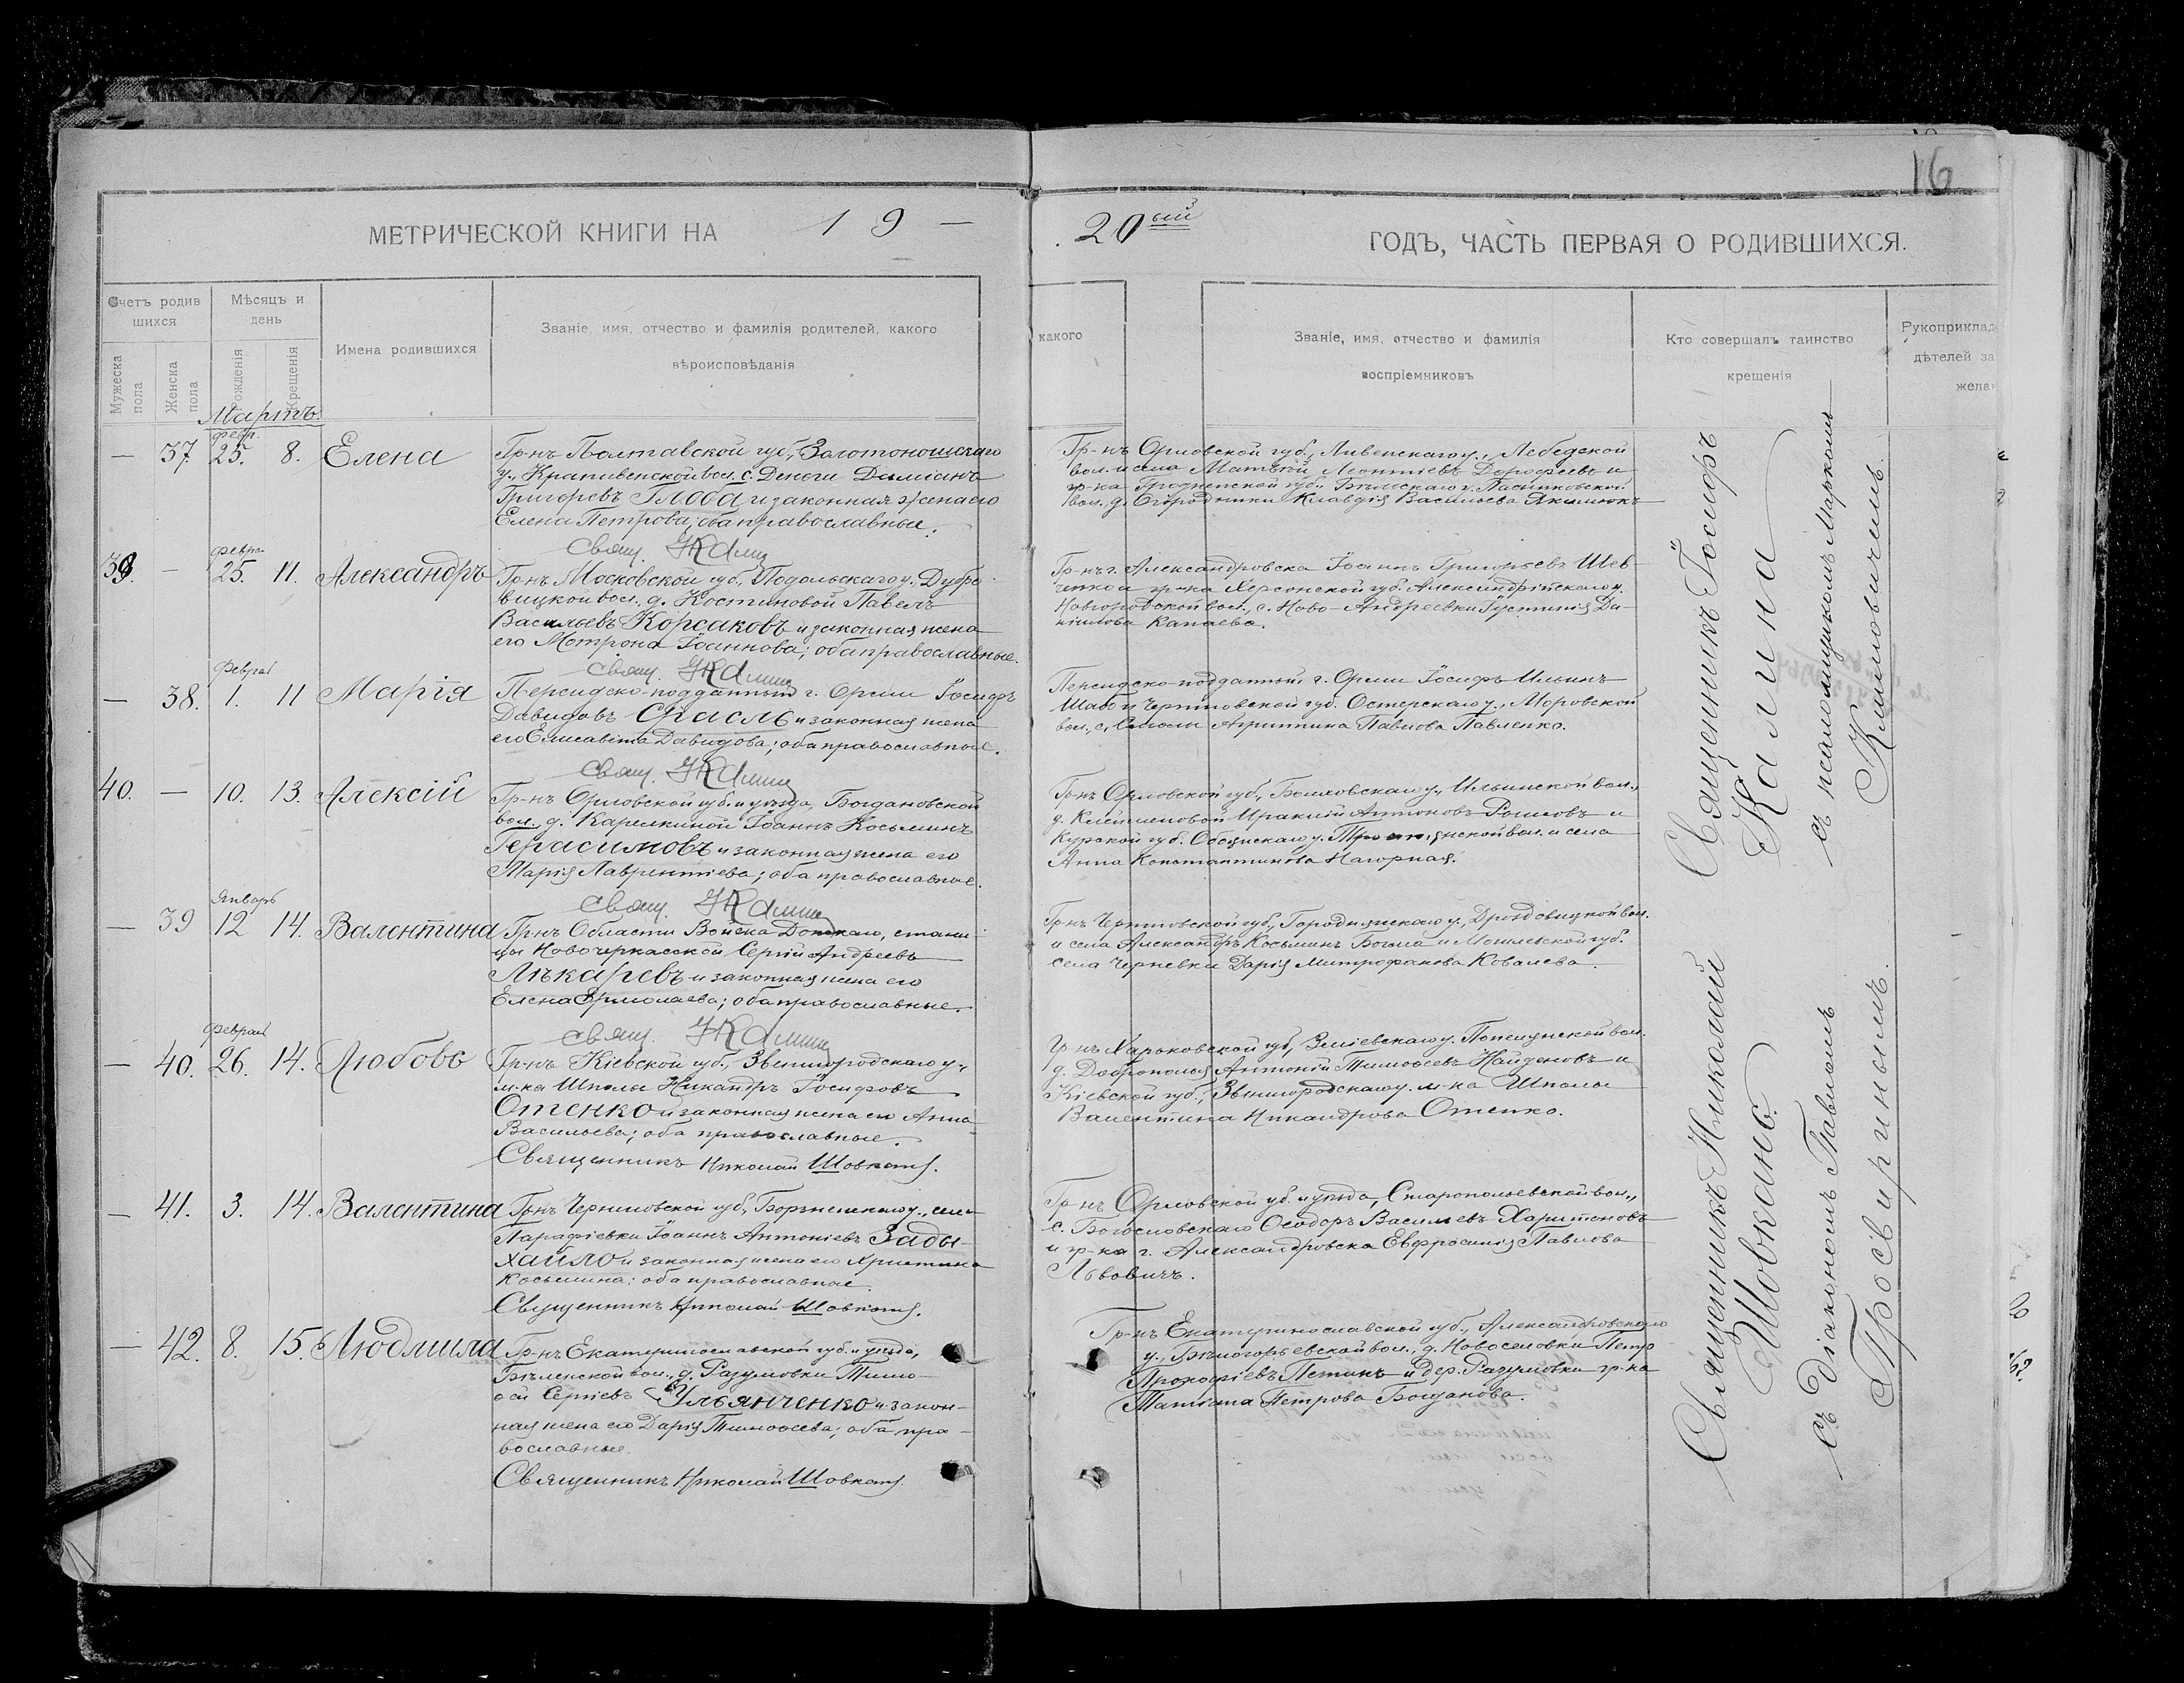 16
МЕТРИЧЕСКОЙ КНИГИ НА 19 —
20ый ГОДЪ, ЧАСТЬ ПЕРВАЯ О РОДИВШИХСЯ.
Счетъ родив
шихся
Мужеска пола
Женска пола
Мѣсяцъ и
день
рожденія
Крещенія
Имена родившихся
Званіе, имя, отчество и фамилія родителей, какого
вѣроисповѣданія
какого
Званіе, имя, отчество и фамилія
воспріемниковъ
Кто совершалъ таинство
крещенія
Рукоприклад
дѣтелей за
желан
Мартъ.
февр.
— 37. 25. 8. Елена
Гр-нъ Полтавской губ., Золотоношскаго
у., Крапивенской вол. с. Деньги Даміанъ
Григорьевъ Глоба и законная жена его
Елена Петрова; оба православные.
Свящ. І Калина
Гр-нъ Орловской губ., Ливенскаго у., Лебедской
вол. и села Матѳей Леонтіевъ Дорофеевъ и
гр-ка Гродненской губ., Бѣльскаго у. Пасынковской
вол. д. Огородники Клавдія Васильева Якимюкъ
февра
39. — 25. 11. Александръ
Гр-нъ Московской губ., Подольскаго у. Дубро-
вицкой вол., д. Костиновой Павелъ
Васильевъ Корсаковъ и законная жена
его Матрона Іоаннова; оба православные.
Свящ. І Калина
Гр-нъ г. Александровска Іоаннъ Григорьевъ Шев-
ченко и гр-ка Херсонской губ. Александрійскаго у.
Новгородской вол., с. Ново-Андреевки Іустинія Да-
ніилова Капаева.
Феврал
— 38. 1. 11 Марія
Персидско-подданный г. Орміи Іосифъ
Давидовъ Спасль и законная жена
его Елисавета Давидова; оба православные.
Свящ. І Калина
Персидско-подданный г. Орміи Іосифъ Ильинъ
Шабо и Черниговской губ. Остерскаго у., Моровской
вол., с. Агриппина Павлова Павленко.
40. — 10. 13. Алексій
Гр-нъ Орловской губ. и уѣзда, Богдановской
вол. д. Карелкиной Іоаннъ Косьминъ
Герасимовъ и законная жена его
Марія Лаврентіева; оба православные.
Свящ. І Калина
Гр-нъ Орловской губ., Болховскаго у., Ильинской вол.,
д. Ираклій Антоновъ и
Курской губ. Обоянскаго у. вол. и села
Анна Константинова Нагорная.
Январь
— 39 12 14. Валентина
Гр-нъ Области Войска Донскаго, стани-
цы Новочеркасской Сергій Андреевъ
Лѣкаревъ и законная жена его
Елена Ермолаева; оба православные.
Свящ. І Калина
Гр-нъ Черниговской губ., Городнянскаго у., Дроздовицкой вол.
и села Александръ Косьминъ и Могилевской губ.
села Черневки Дарія Митрофанова Ковалева.
Феврал
— 40. 26. 14. Любовь
Гр-нъ Кіевской губ., Звенигородскаго у.,
м-ка Шполы Никандръ Іосифовъ
Отенко и законная жена его Анна
Васильева; оба православные.
Священникъ Николай Шовкань.
Гр-нъ Харьковской губ., Зміевскаго у. вол.
д. Доброполья Антоній Тимоѳеевъ Найденовъ и
Кіевской губ., Звенигородскаго у. м-ка Шполы
Валентина Никандрова Отенко.
— 41. 3. 14. Валентина
Гр-нъ Черниговской губ., Борзненскаго у., села
Парафіевки Іоаннъ Антоніевъ Зады-
хайло и законная жена его Христина
Косьмина; оба православные.
Священникъ Николай Шовкань.
Гр-нъ Орловской губ. и уѣзда, Старопольевской вол.,
с. Богословскаго Ѳеодоръ Васильевъ Харитоновъ
и гр-ка г. Александровска Евфросинія Павлова
Львовичъ.
— 42. 8. 15. Людмила
Гр-нъ Екатеринославской губ. и уѣзда,
Бѣленской вол., д. Разумовки Тимо-
ѳей Сергіевъ Ульянченко и закон-
ная жена его Дарія Тимоѳеева; оба пра-
вославные.
Священникъ Николай Шовкань.
Гр-нъ Екатеринославской губ., Александровскаго
у., Бѣлогорьевской вол., д. Новоселовки Петр
Прокофіевъ Петинъ и дер. Разумовки гр-ка
Татіана Петрова Богданова.
Священникъ Іосифъ
Калина
съ псаломщикомъ Маркомъ
Климовичемъ.
Священникъ Николай
Шовкань.
съ Діакономъ Павломъ
Просвиринымъ.